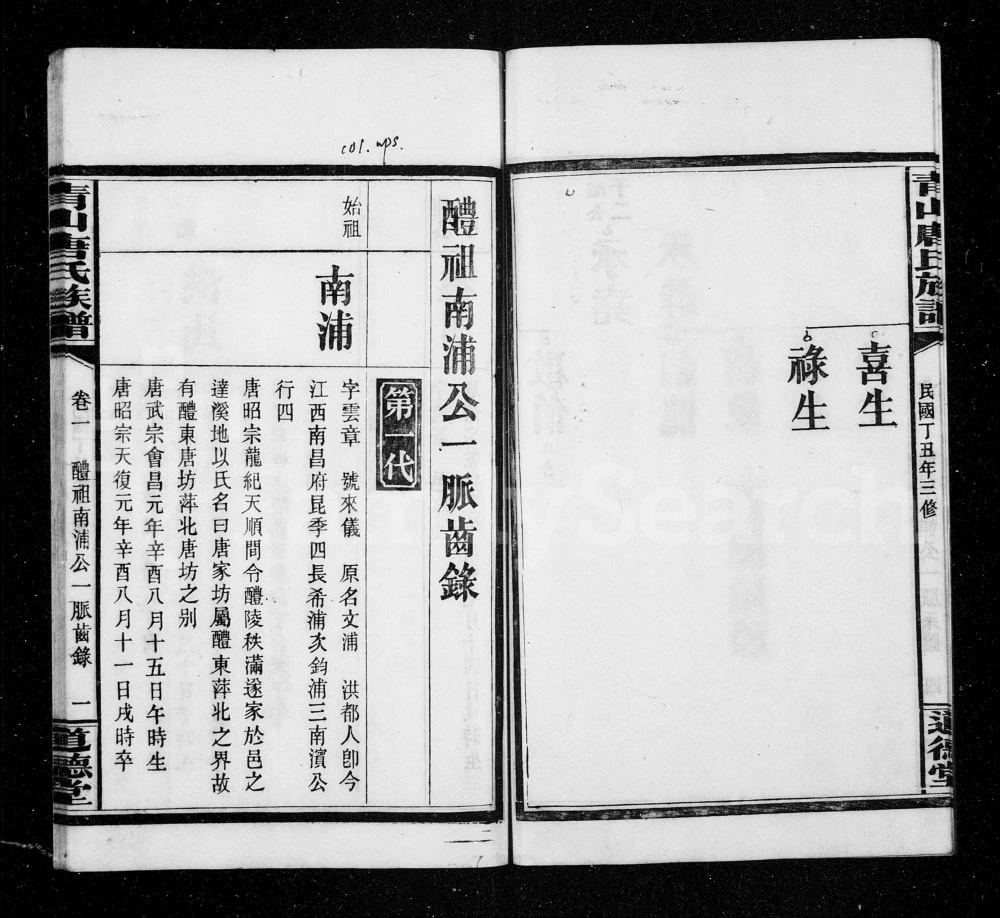 青山唐氏族譜
民國丁丑年三修
道德堂
喜生
祿生
col. wps.
醴祖南浦公一脈齒錄
第一代
始祖
南浦
字雲章 號來儀 原名文浦 洪都人卽今
江西南昌府昆季四長希浦次鈞浦三南濱公
行四
唐昭宗龍紀天順間令醴陵秩滿遂家於邑之
達溪地以氏名曰唐家坊屬醴東萍北之界故
有醴東唐坊萍北唐坊之別
唐武宗會昌元年辛酉八月十五日午時生
唐昭宗天復元年辛酉八月十一日戌時卒
青山唐氏族譜
卷二 醴祖南浦公一脈齒錄 一
道德堂